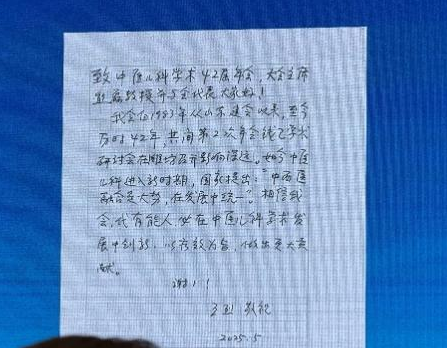 致中医儿科学术42届年会,大会主席
教授携并与会代表大家好!
我会在1983年从山东建会以来,至今
历时42年,共间第2次年会线下学术
研讨会在潍坊召开影响深远。如今中医
儿科进入新时期,国家提出:“中西医
融合是大势,在发展中统一”。相信我
会,代有能人,必在中医儿科学术发
展中创新,以 为 ,做出更大贡
献。
谢!!
王烈 敬祝
2025.5